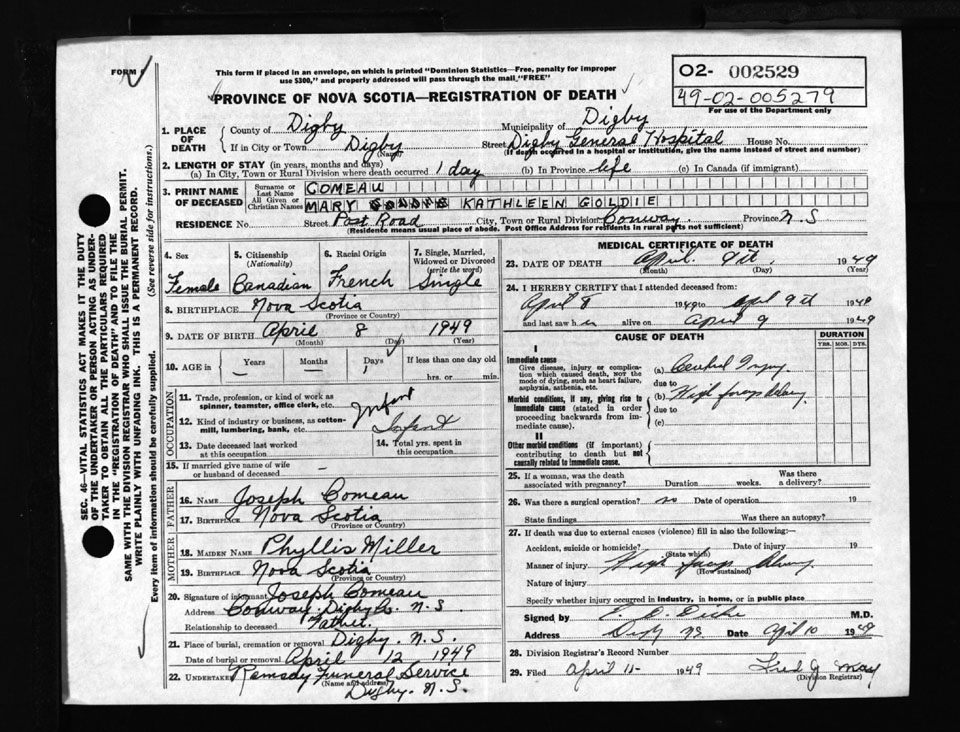 FORM
This form if placed in an envelope, on which is printed "Dominion Statistics—Free, penalty for improper
use $300," and properly addressed will pass through the mail "FREE"
PROVINCE OF NOVA SCOTIA—REGISTRATION OF DEATH
02- 002529
49-02-005279
For use of the Department only
1. PLACE OF DEATH
County of Digby Municipality of Digby
If in City or Town Digby (Name) Street Digby General Hospital House No.
(If death occurred in a hospital or institution, give the name instead of street and number)
2. LENGTH OF STAY (in years, months and days)
(a) In City, Town or Rural Division where death occurred 1 day (b) In Province life (c) In Canada (if immigrant)
3. PRINT NAME OF DECEASED
Surname or Last Name COMEAU
All Given or Christian Names MARY KATHLEEN GOLDIE
RESIDENCE No. Street Post Road City, Town or Rural Division Conway Province N.S
(Residence means usual place of abode. Post Office Address for residents in rural parts not sufficient)
4. Sex Female
5. Citizenship (Nationality) Canadian
6. Racial Origin French
7. Single, Married, Widowed or Divorced (write the word) Single
8. BIRTHPLACE Nova Scotia
(Province or Country)
9. DATE OF BIRTH April 8 1949
(Month) (Day) (Year)
10. AGE in Years Months Days 1 If less than one day old
hrs. or min.
OCCUPATION
11. Trade, profession, or kind of work as
spinner, teamster, office clerk, etc. Infant
12. Kind of industry or business, as cotten-
mill, lumbering, bank, etc. Infant
13. Date deceased last worked
at this occupation
14. Total yrs. spent in
this occupation
15. If married give name of wife
or husband of deceased –
FATHER
16. NAME Joseph Comeau
17. BIRTHPLACE Nova Scotia
(Province or Country)
MOTHER
18. MAIDEN NAME Phyllis Miller
19. BIRTHPLACE Nova Scotia
(Province or Country)
20. Signature of informant Joseph Comeau
Address Conway Digby Co. N.S
Relationship to deceased Father.
21. Place of burial, cremation or removal Digby. N.S.
Date of burial or removal April 12 1949
22. UNDERTAKER Ramsay Funeral Service
(Name and Address)
Digby. N.S.
MEDICAL CERTIFICATE OF DEATH
23. DATE OF DEATH April 9th 1949
(Month) (Day) (Year)
24. I HEREBY CERTIFY that I attended deceased from:
April 8 1949 to April 9th 1949
and last saw h alive on April 9 1949
CAUSE OF DEATH
DURATION
YRS. MOS. DYS.
I
Immediate cause
Give disease, injury or complica-
tion which caused death, not the
mode of dying, such as heart failure,
asphyxia, asthenia, etc.
(a) Cerebral Injury
due to
Morbid conditions, if any, giving rise to
immediate cause (stated in order
proceeding backwards from im-
mediate cause).
(b) High forceps delivery
due to
(c)
II
Other morbid conditions (if important)
contributing to death but not
causally related to immediate cause.
25. If a woman, was the death
associated with pregnancy? Duration weeks. Was there
a delivery?
26. Was there a surgical operation? no Date of operation 19
State findings Was there an autopsy?
27. If death was due to external causes (violence) fill in also the following:
Accident, suicide or homicide? Date of injury 19
(State which)
Manner of injury High forceps delivery
(How sustained)
Nature of injury
Specify whether injury occurred in industry, in home, or in public place
Signed by M.D.
Address Digby NS Date April 10 1949
28. Division Registrar's Record Number
29. Filed April 11 1949 Fred J
(Division Registrar)
SEC. 46—VITAL STATISTICS ACT MAKES IT THE DUTY
OF THE UNDERTAKER OR PERSON ACTING AS UNDER-
TAKER TO OBTAIN ALL THE PARTICULARS REQUIRED
IN THE "REGISTRATION OF DEATH" AND TO FILE THE
SAME WITH THE DIVISION REGISTRAR WHO SHALL ISSUE THE BURIAL PERMIT.
WRITE PLAINLY WITH UNFADING INK. THIS IS A PERMANENT RECORD.
Every item of information should be carefully supplied. (See reverse side for instructions.)